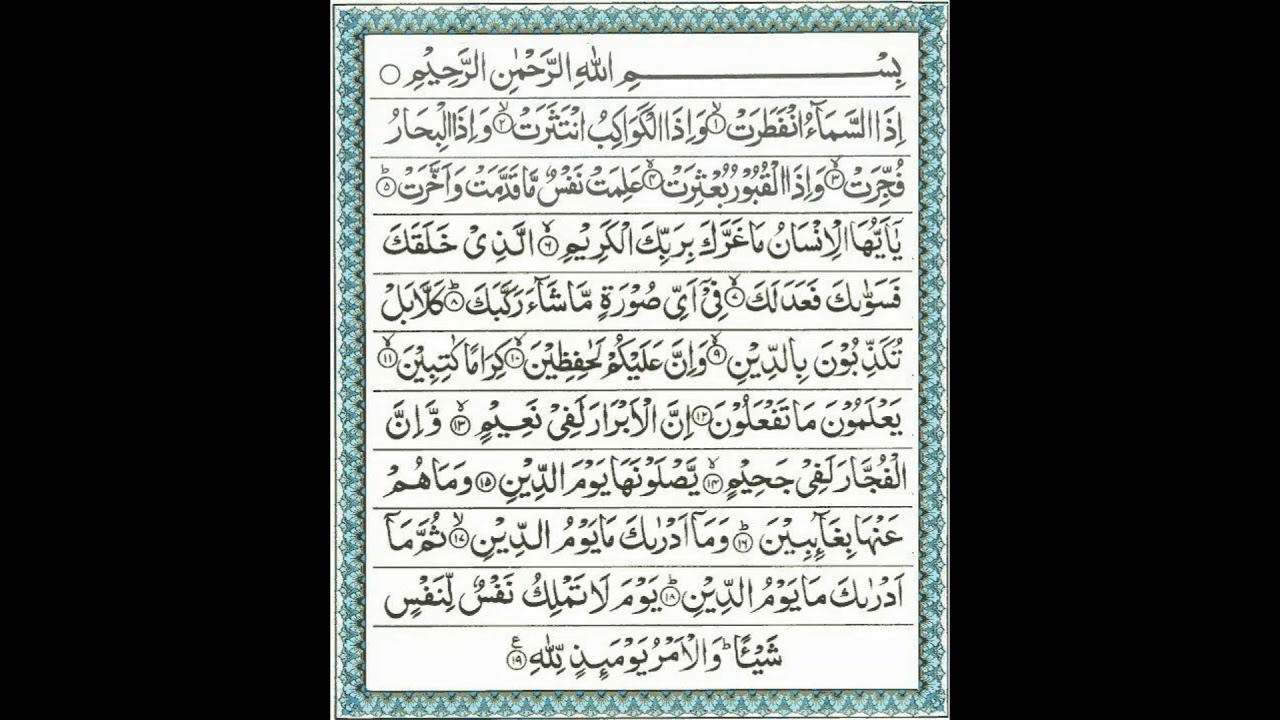 بِسْمِ اللهِ الرَّحْمٰنِ الرَّحِيْمِ ○
اِذَا السَّمَآءُ انْفَطَرَتْ ۙ﴿۱﴾ وَاِذَا الْكَوَاكِبُ انْتَثَرَتْ ۙ﴿۲﴾ وَاِذَا الْبِحَارُ
فُجِّرَتْ ۙ﴿۳﴾ وَاِذَا الْقُبُوْرُ بُعْثِرَتْ ۙ﴿۴﴾ عَلِمَتْ نَفْسٌ مَّا قَدَّمَتْ وَاَخَّرَتْ ؕ﴿۵﴾
يٰۤاَيُّهَا الْاِنْسَانُ مَا غَرَّكَ بِرَبِّكَ الْكَرِيْمِ ۙ﴿۶﴾ الَّذِىْ خَلَقَكَ
فَسَوّٰىكَ فَعَدَلَكَ ۙ﴿۷﴾ فِىْۤ اَىِّ صُوْرَةٍ مَّا شَآءَ رَكَّبَكَ ؕ﴿۸﴾ كَلَّا بَلْ
تُكَذِّبُوْنَ بِالدِّيْنِ ۙ﴿۹﴾ وَاِنَّ عَلَيْكُمْ لَحٰفِظِيْنَ ۙ﴿۱۰﴾ كِرَامًا كٰتِبِيْنَ ۙ﴿۱۱﴾
يَعْلَمُوْنَ مَا تَفْعَلُوْنَ ﴿۱۲﴾ اِنَّ الْاَبْرَارَ لَفِىْ نَعِيْمٍ ۙ﴿۱۳﴾ وَّاِنَّ
الْفُجَّارَ لَفِىْ جَحِيْمٍ ۙ﴿۱۴﴾ يَّصْلَوْنَهَا يَوْمَ الدِّيْنِ ﴿۱۵﴾ وَمَا هُمْ
عَنْهَا بِغَآئِبِيْنَ ؕ﴿۱۶﴾ وَمَاۤ اَدْرٰىكَ مَا يَوْمُ الدِّيْنِ ۙ﴿۱۷﴾ ثُمَّ مَاۤ
اَدْرٰىكَ مَا يَوْمُ الدِّيْنِ ؕ﴿۱۸﴾ يَوْمَ لَا تَمْلِكُ نَفْسٌ لِّنَفْسٍ
شَيْئًا ؕ وَالْاَمْرُ يَوْمَئِذٍ لِّلّٰهِ ﴿۱۹﴾ ع